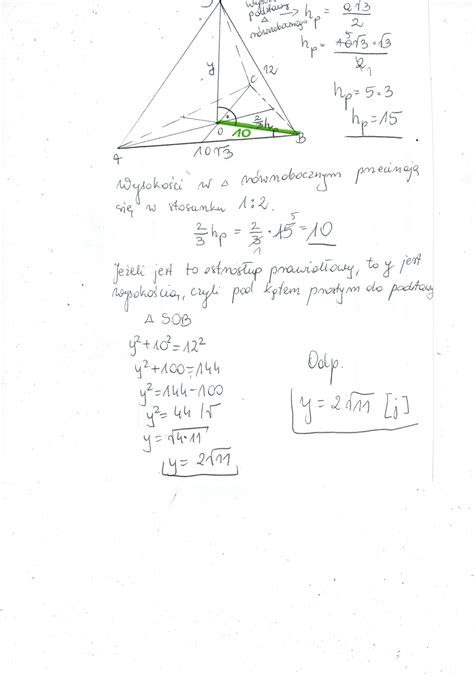 S
wysok.
podstawy
Δ
równobocznego
→ hp = a√3 / 2
hp = 10√3 · √3 / 2
5
1
hp = 5 · 3
hp = 15
y
12
C
2/3 hp
O
10
A
B
10√3
Wysokości w Δ równobocznym przecinają
się w stosunku 1:2.
2/3 hp = 2/3 · 15 = 10
5
1
Jeżeli jest to ostrosłup prawidłowy, to y jest
wysokością, czyli pod kątem prostym do podstawy
Δ SOB
y²+10²=12²
y²+100=144
y²=144-100
y²=44 /√
y=√4·11
y=2√11
Odp.
y=2√11 [j]